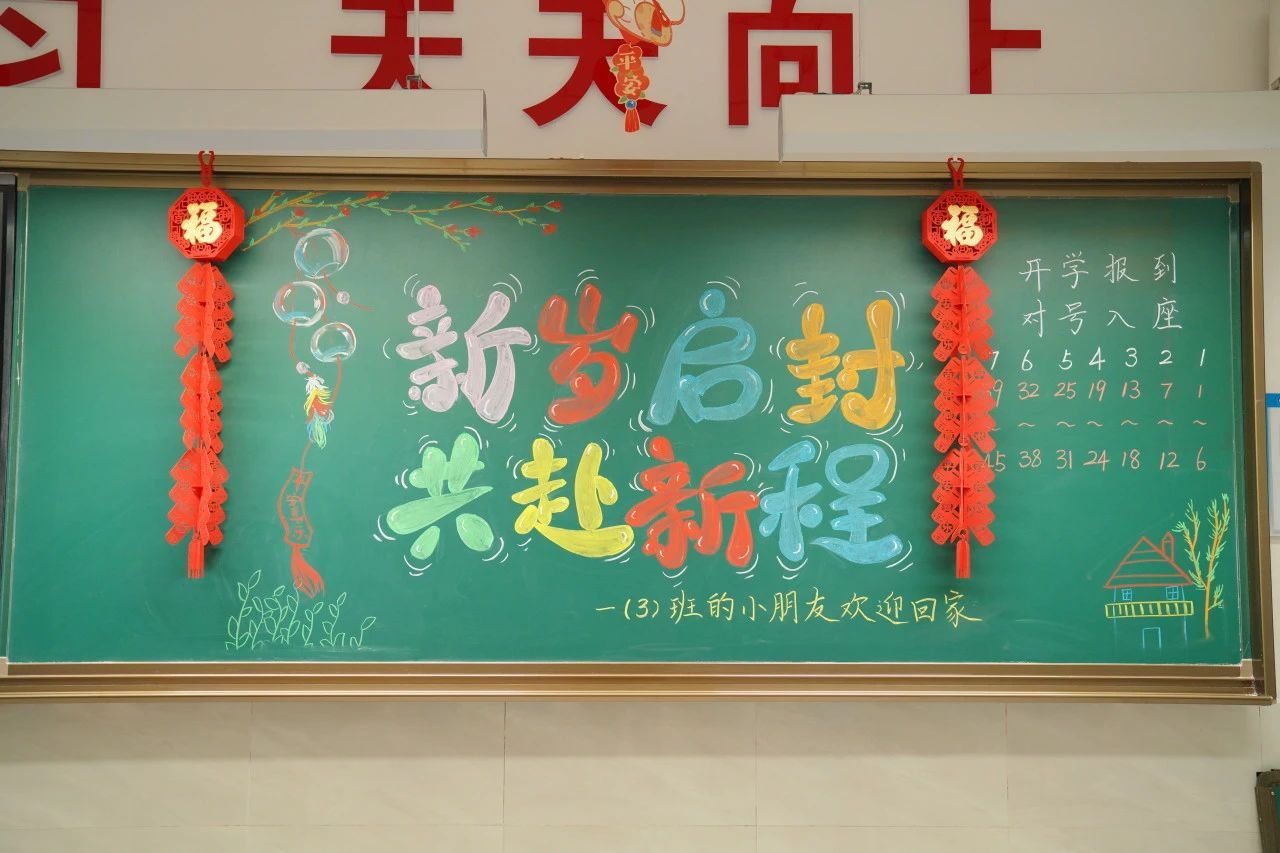 天天向上
平安
福
福
新岁启封
共赴新程
一(3)班的小朋友欢迎回家
开学报到
对号入座
7 6 5 4 3 2 1
32 25 19 13 7 1
~ ~ ~ ~ ~ ~ ~
45 38 31 24 18 12 6